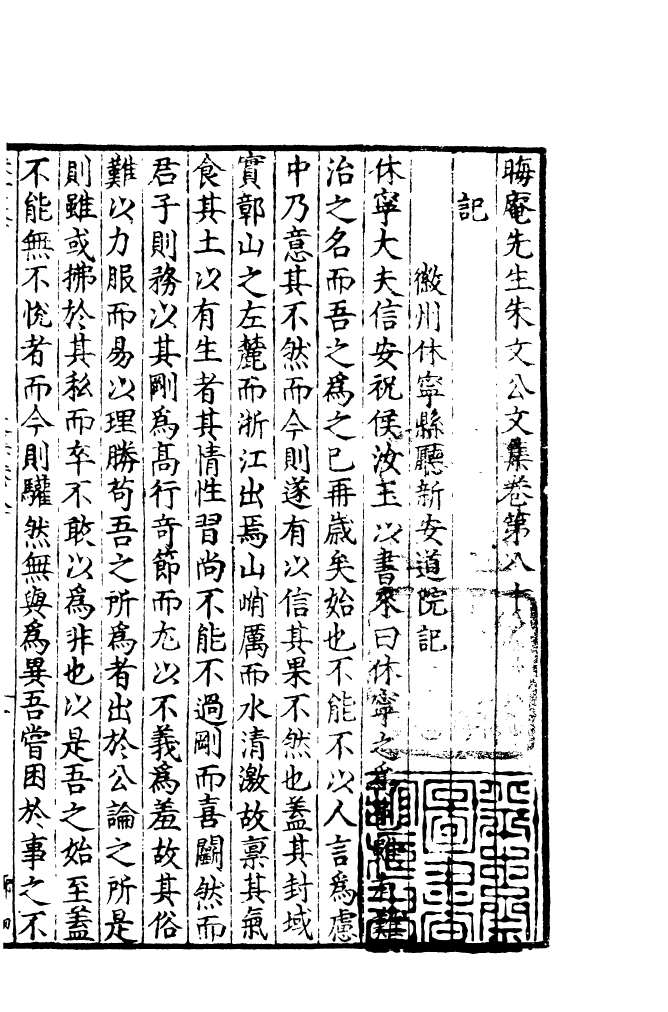 晦庵先生朱文公文集卷第八十
記
徽州休寧縣廳新安道院記
休寧大夫信安祝侯汝玉以書來曰休寧之爲邑雖有難
治之名而吾之爲之已再歲矣始也不能不以人言爲慮
中乃意其不然而今則遂有以信其果不然也蓋其封域
實鄣山之左麓而浙江出焉山峭厲而水清激故禀其氣
食其土以有生者其情性習尚不能不過剛而喜鬬然而
君子則務以其剛爲高行奇節而尤以不義爲羞故其俗
難以力服而易以理勝苟吾之所爲者出於公論之所是
則雖或拂於其私而卒不敢以爲非也以是吾之始至蓋
不能無不悅者而今則驩然無與爲異吾嘗困於事之不